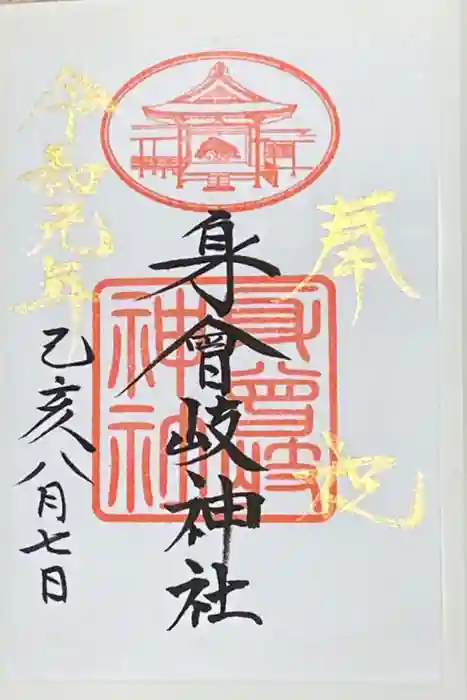 奉祝
身曾岐神社
身曾岐神社
令和元年
己亥八月七日